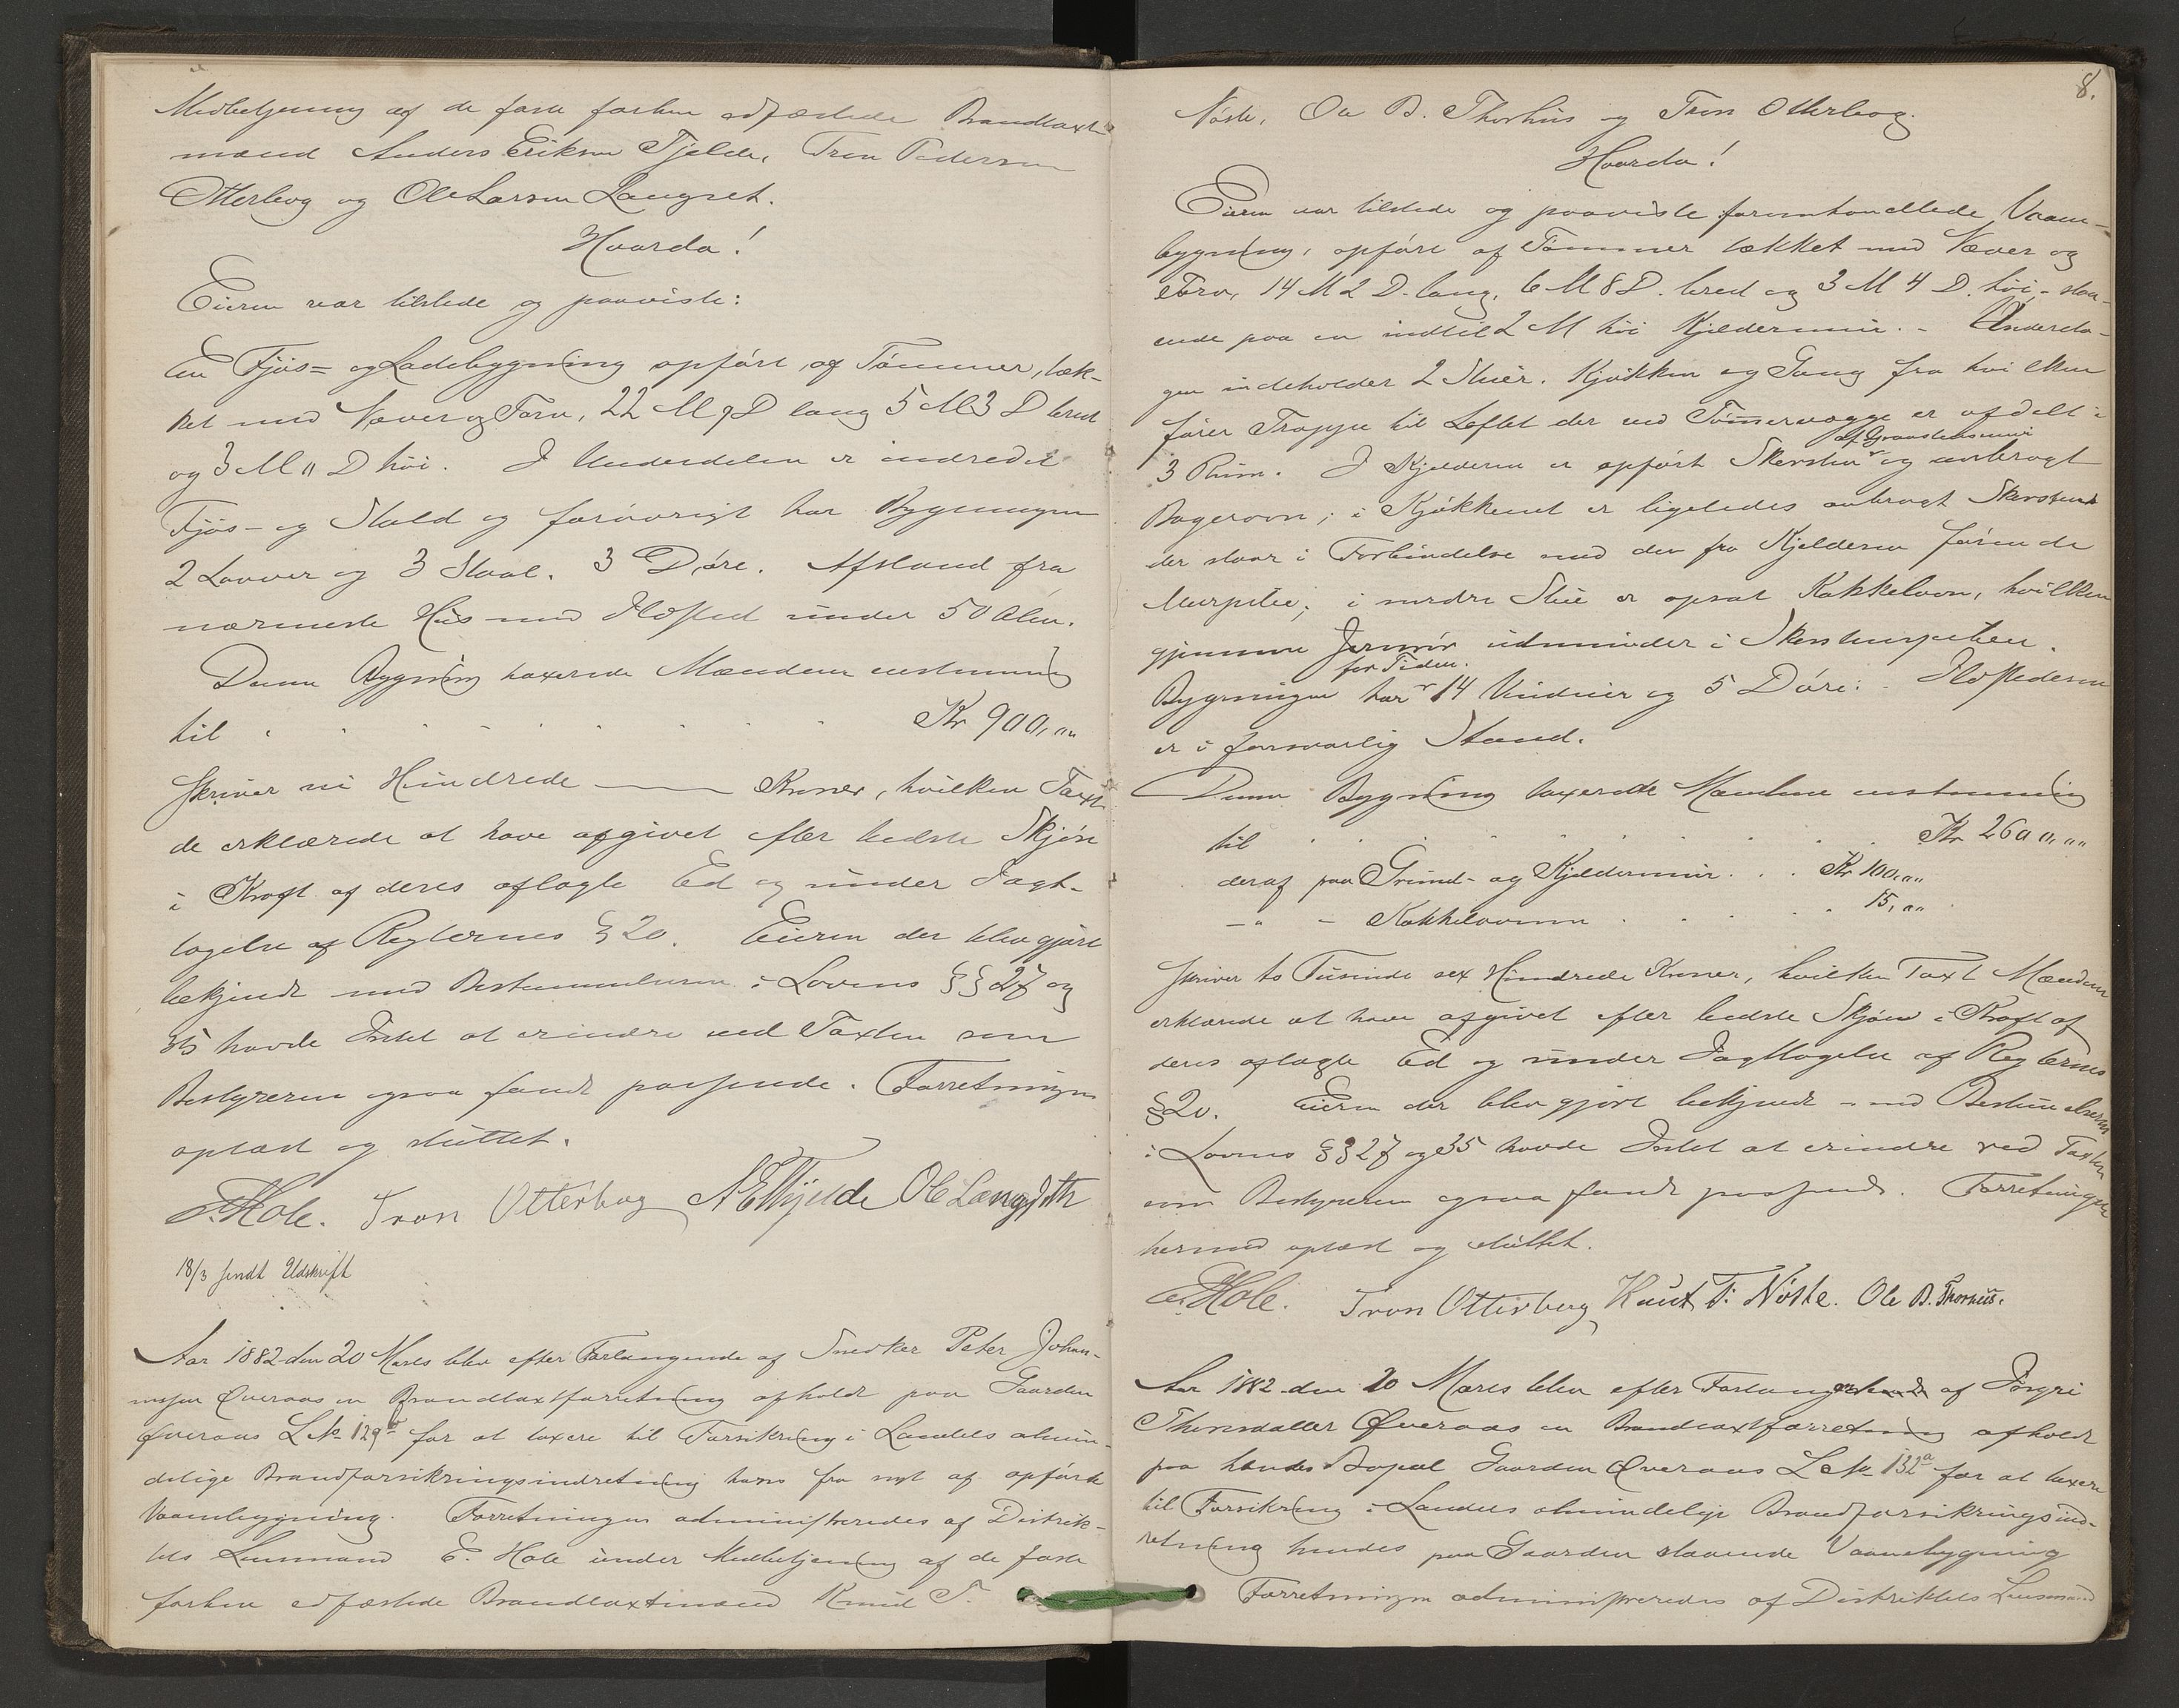 Medbetjening af de faste forhen edfæstede Brandtaxt-
mænd Anders Eriksen Tjelde, Tron Pedersen
Otterbog og Ole Larsen Langset.
Hvorda!
Eieren var tilstede og paaviste:
En Fjøs= og Ladebygning opført af Tømmer, tæk-
ket med Næver og Torv, 22 M 9 D lang 5 M 3 D bred
og 3 M „ D høi. I Underdelen er indredet
Fjøs- og Stald og forøvrigt har Bygningen
2 Laaver og 3 Staal. 3 Døre. Afstand fra
nærmeste Hus med Ildsted under 50 Alen.
Denne Bygning taxerede Mændene enstemmig
til . . . . . . . . Kr 900,„„
skriver ni Hundrede —— Kroner, hvilken Taxt
de erklærede at have afgivet efter bedste Skjøn
i Kraft af deres aflagte Ed og under Iagt-
tagelse af Reglernes § 20. Eieren der blev gjort
bekjendt med Bestemmelserne i Lovens §§ 27 og
35 havde Intet at erindre ved Taxten som
Bestyreren ogsaa fandt passende. Forretningen
oplæst og sluttet.
E. Hole. Tron Otterbog AETjelde Ole Langseth
18/3 sendt Udskrift
Aar 1882 den 20 Marts blev efter Forlangende af Snedker Peter Johan-
nessen Øveraas en Brandtaxtforretning afholdt paa Gaarden
Øveraas L No 129 for at taxere til Forsikring i Landets almin-
delige Brandforsikringsindretning hans fra nyt af opførte
Vaanebygning. Forretningen administreredes af Distrik-
tets Lensmand E. Hole under Medbetjening af de faste
forhen edfæstede Brandtaxtmænd Knud T.
8.
Nøste, Ole B. Thorhus og Tron Otterbog.
Hvorda!
Eieren var tilstede og paaviste foromhandlede Vaane-
bygning, opført af Tømmer tækket med Næver og
Torv, 14 M 2 D. lang, 6 M 8 D. bred og 3 M 4 D. høi, staa-
ende paa en indtil 2 M høi Kjeldermur. - Undereta-
gen indeholder 2 Stuer, Kjøkken og Gang fra hvilken
fører Trappe til Loftet der ved Tømmervægge er afdelt i
af Graastensmur
3 Rum. I Kjelderen er opført Skorsten og anbragt
Bagerovn; i Kjøkkenet er ligeledes anbragt Skorsten
der staar i Forbindelse med den fra Kjelderen førende
Murpibe; i nordre Stue er opsat Kakkelovn, hvilken
gjennem Jernrør udmunder i Skorstenspiben.
for Tiden.
Bygningen har 14 Vinduer og 5 Døre: - Ildstederne
er i forsvarlig Stand.
Denne Bygning taxerede Mændene enstemmig
til . . . . . . . . Kr 2600,„„
deraf paa Grund- og Kjeldermur . . . Kr 100,„„
-„ - Kakkelovnen . . . . . 15,„„
skriver to Tusinde sex Hundrede Kroner, hvilken Taxt Mændene
erklærede at have afgivet efter bedste Skjøn i Kraft af
deres aflagte Ed og under Iagttagelse af Reglernes
§ 20. Eieren der blev gjort bekjendt med Bestemmelserne
i Lovens §§ 27 og 35 havde Intet at erindre ved Taxten
som Bestyreren ogsaa fandt passende. Forretningen
hermed oplæst og sluttet.
E. Hole. Tron Otterbog Knut T. Nøste. Ole B. Thorhus.
Aar 1882 den 20 Marts blev efter Forlangende af Ingri
Thorsdatter Øveraas en Brandtaxtforretning afholdt
paa hendes Bopæl Gaarden Øveraas L No 132a for at taxere
til Forsikring i Landets almindelige Brandforsikringsind-
retning hendes paa Gaarden staaende Vaanebygning
Forretningen administreredes af Distriktets Lensmand